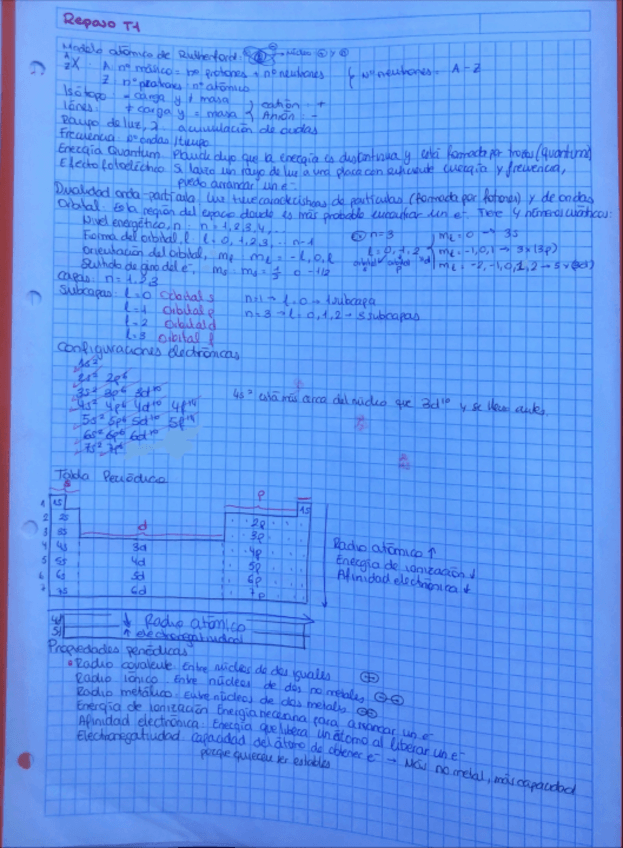 Repaso T1
Modelo atómico de Rutherford: núcleo
A X : A: nº másico = nº protones + nº neutrones { Nº neutrones = A - Z
Z Z: nº protones nº atómico
Isótopo: = carga y ≠ masa
Iones: ≠ carga y = masa } catión: + Anión: -
Frecuencia: nº ondas /tiempo
Energía Quantum: Planck dijo que la energía es discontinua y está formada por trozos (quantum)
Efecto fotoeléctrico: Si lanzo un rayo de luz a una placa con suficiente energía y frecuencia,
puedo arrancar un e-
Dualidad onda-partícula: luz tiene características de partículas (formada por fotones) y de ondas
Orbital: Es la región del espacio donde es más probable encontrar un e-. Tiene 4 números cuánticos:
Nivel energético, n: n = 1, 2, 3, 4, ...
Forma del orbital, l: l = 0, 1, 2, 3, ... n-1
Orientación del orbital, ml: ml = -l, 0, l
Sentido de giro del e-, ms: ms = 1/2 o -1/2
n=3
l = 0, 1, 2
ml = 0 → 3s
ml = -1, 0, 1 → 3 x (3p)
ml = -2, -1, 0, 1, 2 → 5 x (3d)
Capas: n = 1, 2, 3
Subcapas: l = 0 Orbital s n=1 → l = 0 → 1 subcapa
l = 1 Orbital p n = 3 → l = 0, 1, 2 → 3 subcapas
l = 2 Orbital d
l = 3 Orbital f
Configuraciones electrónicas
1s2
2s2 2p6
3s2 3p6 3d10
4s2 4p6 4d10 4f14 4s2 está más cerca del núcleo que 3d10 y se llena antes.
5s2 5p6 5d10 5f14
6s2 6p6 6d10
7s2 7p6
Tabla Periódica
s p
1 1s 1s
2 2s d 2p
3 3s 3p
4 4s 3d 4p
5 5s 4d 5p
6 6s 5d 6p
7 7s 6d 7p
Radio atómico ↑
Energía de ionización ↓
Afinidad electrónica ↓
4f ↓ Radio atómico
5f ↑ electronegatividad
Propiedades periódicas
Radio covalente: Entre núcleos de dos iguales
Radio iónico: Entre núcleos de dos no metales
Radio metálico: Entre núcleos de dos metales
Energía de ionización: Energía necesaria para arrancar un e-
Afinidad electrónica: Energía que libera un átomo al liberar un e-
Electronegatividad: capacidad del átomo de obtener e- → Más no metal, más capacidad
porque quieren ser estables